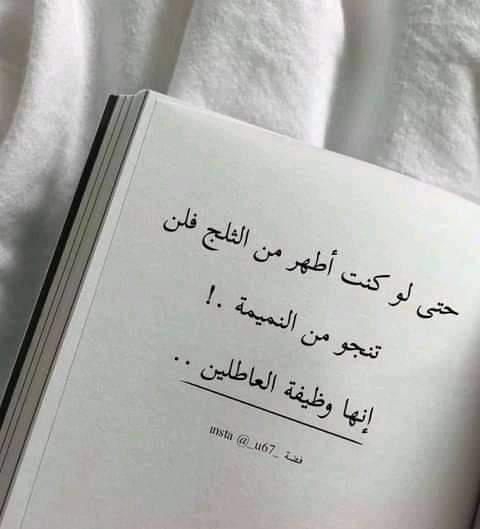 حتى لو كنت أطهر من الثلج فلن
تنجو من النميمة .!
إنها وظيفة العاطلين ..
فضة insta @_u67_